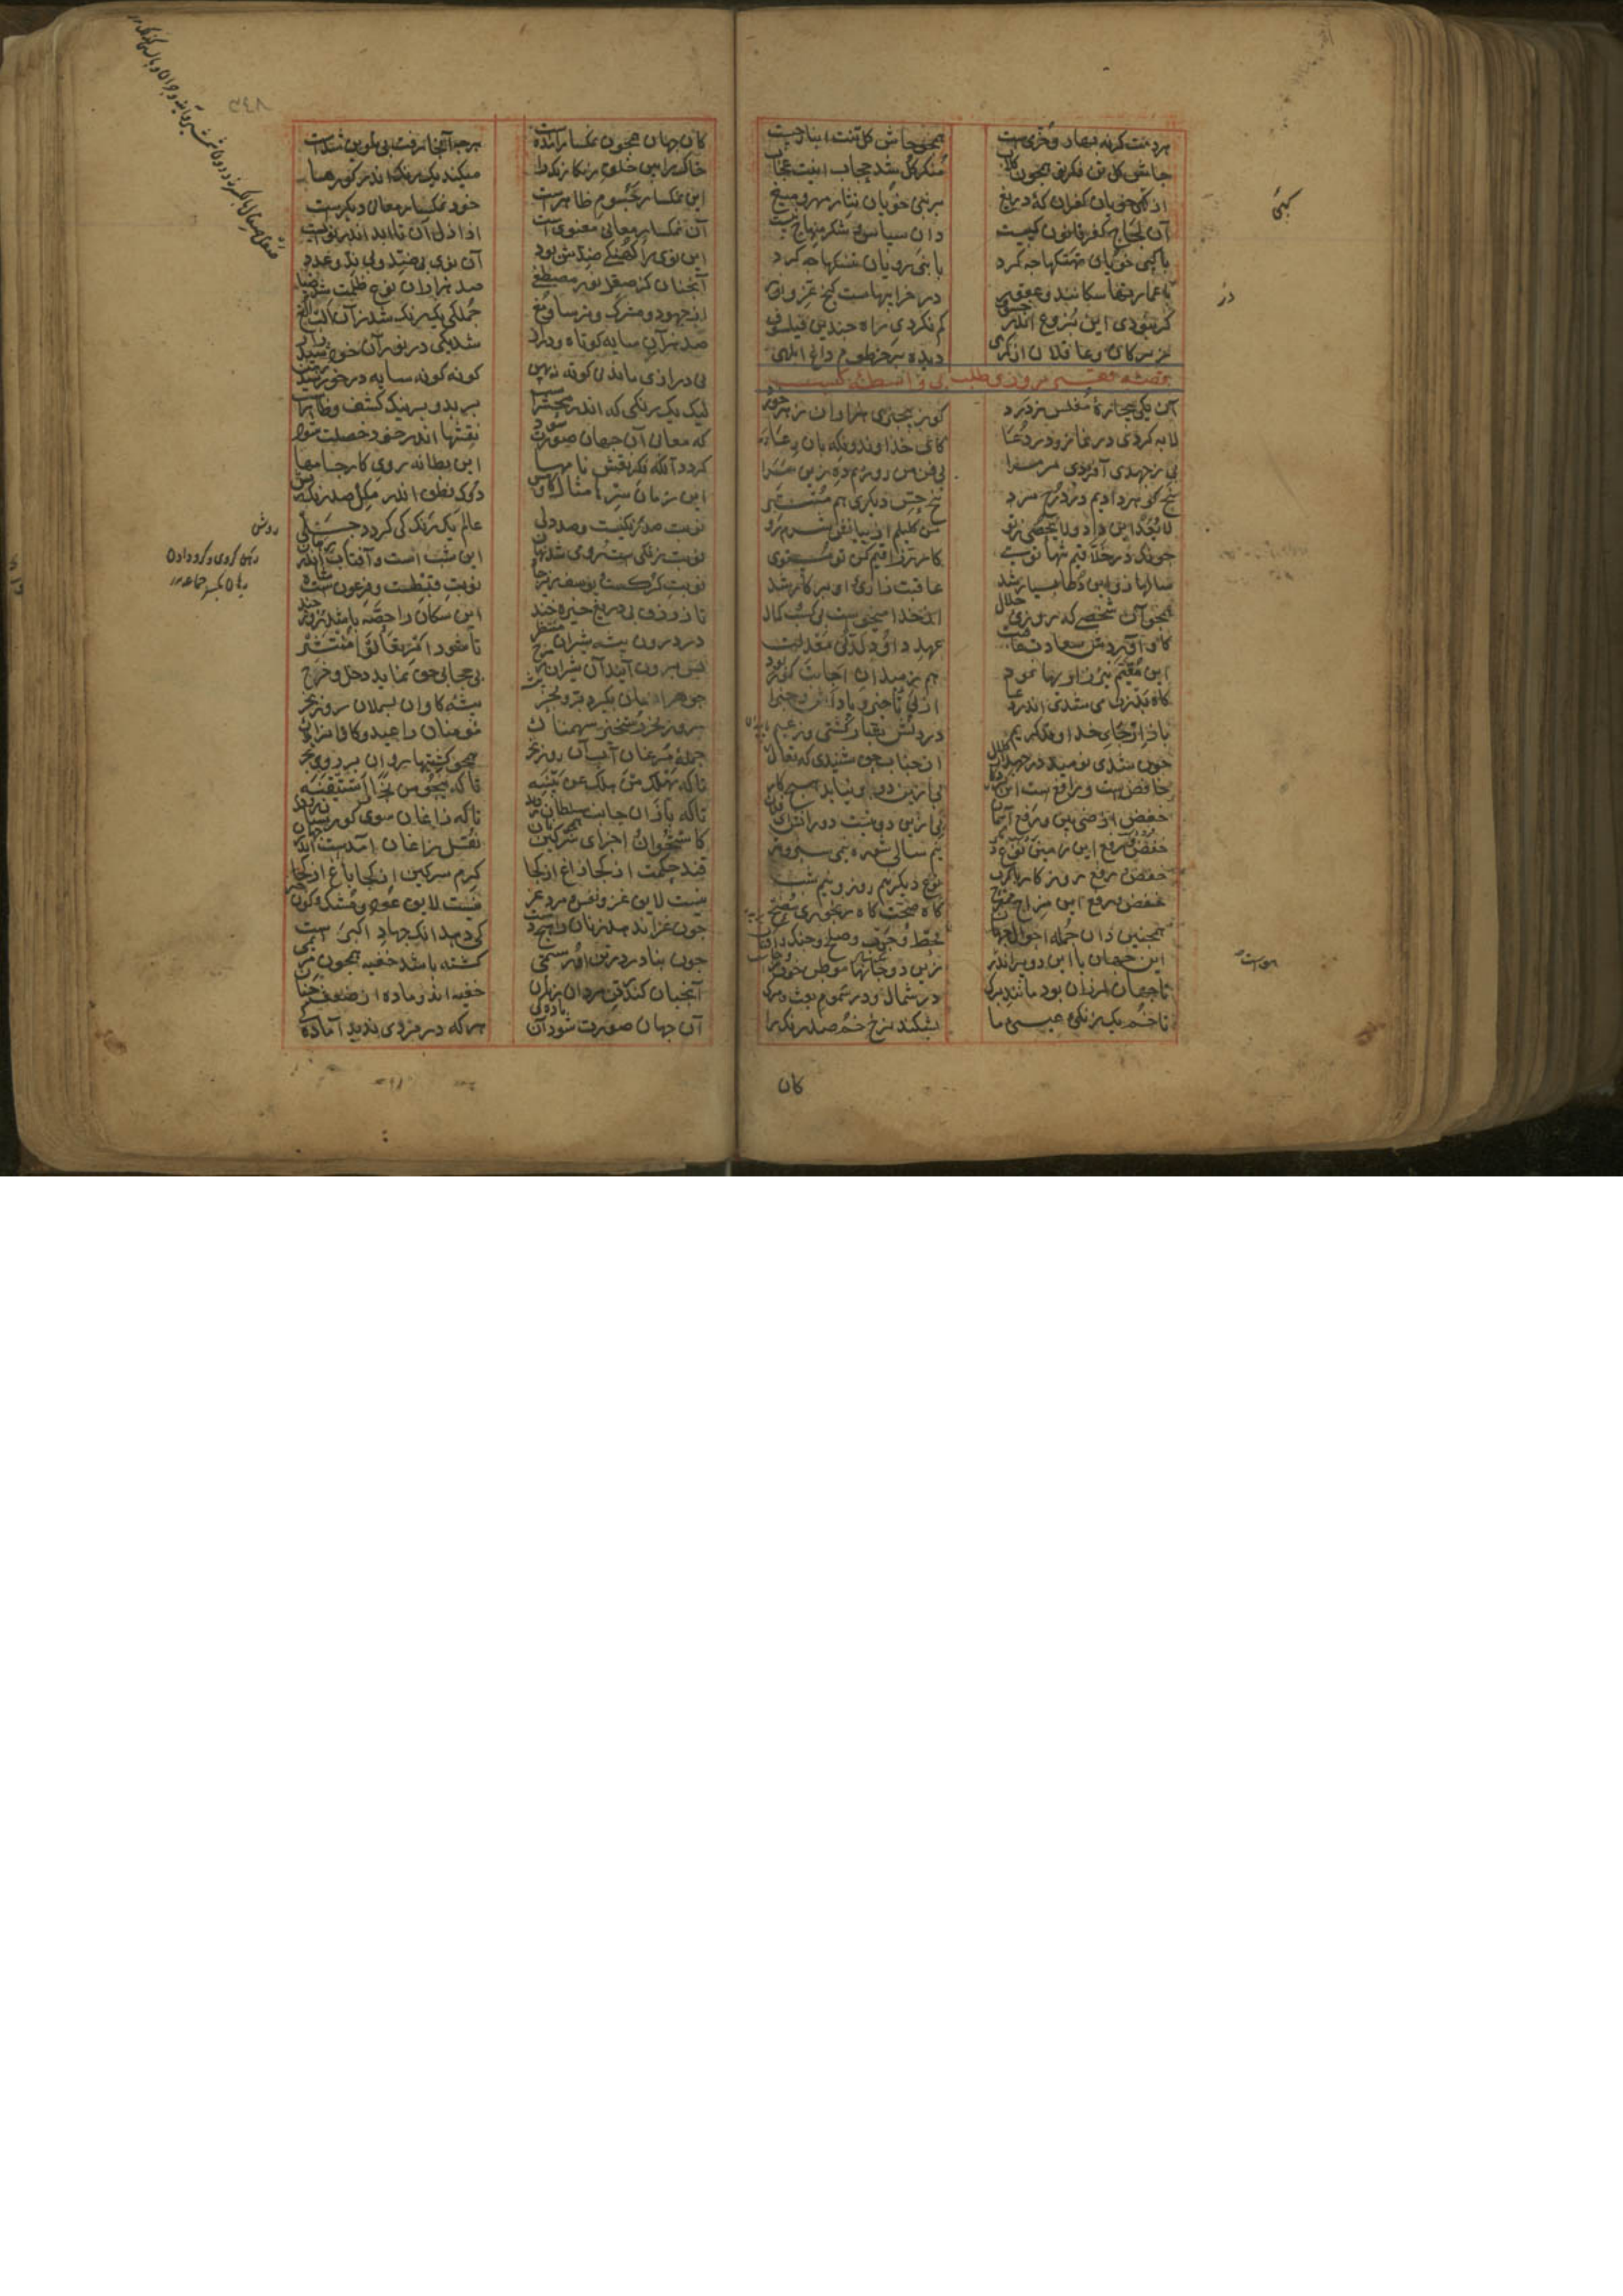 هر دمت کر نه بهار و خرمی است همچو جاش کل تنت انبار جیست
جاش کل تن فکر تو همچون کلاب منکر کل شد کلاب اینت عجاب
از کپی خویان کفران که دریغ بر نبی خویان نثار مهر و میغ
آن لجاج کفر قانون کپیست وان سپاس و شکر منهاج نبیست
با کپی خویان تهتکها جه کرد با نبی رویان تنسکها جه کرد
با عمارتها سکانند و عقور در خرابیهاست کنج عز و نور
کر نبودی این بزوغ اندر خسوف کم نکردی راه جندین فیلسوف
زیرکان و عاقلان از کمرهی دیده بر خرطوم داغ ابلهی
قصه فقیر روزی طلب بی واسطه کسب
آن یکی بیجارهٔ مفلس ز درد کو ز بیجیزی هزاران زهر خورد
لابه کردی در نماز و در دعا کای خداوند و نکهبان رعا
بی ز جهدی آفریدی مر مرا بی فن من روزیم ده زین سرا
پنج کوهر دادیم در درج سر پنج حس دیکری هم مستتر
لا یعد این داد و لا یحصی ز تو من کلیلم از بیانش شرم رو
جونک در خلاقیم تنها توی کار رزاقیم کن تو مستوی
سالها زو این دعا بسیار شد عاقبت زاری او بر کار شد
همجو آن شخصی که روزی حلال از خدا میخواست بی کسب و کلال
کاو آوردش سعادت عاقبت عهد داود لدنی معدلت
این متیم نیز زاریها نمود هم ز میدان اجابت کو ربود
کاه بدظن می شدی اندر دعا از پی تاخیر پاداش و جزا
باز ارجای خداوند کریم در دلش بشار کشتی و زعیم
جون شدی نومید در جهد از کلال از جناب حق شنیدی که تعال
خافض است و رافع است این کردکار بی ازین دو بر نیاید هیج کار
خفض ارضی بین و رفع آسمان بی ازین دو نیست دورانش ای فلان
خفض و رفع این زمین نوعی دکر نیم سالی شوره نیمی سبز و تر
خفض و رفع روزکار با کرب نوع دیکر نیم روز و نیم شب
خفض و رفع این مزاج ممتزج کاه صحت کاه رنجوری مضج
همجنین دان جمله احوال جهان قحط و جدب و صلح و جنک از افتتان
این جهان با این دو پر اندر هواست زین دو جانها موطن خوف و رجاست
تا جهان لرزان بود مانند برک در شمال و در سموم بعث و مرک
تا خم یک رنکی عیسی ما بشکند نرخ خم صد رنک را
کان
کان جهان همجون نمکسار آمده است هر جه آنجا رفت بی تلوین شده است
خاک را بین خلق رنکارنک را میکند یک رنک اندر کورها
این نمکسار جسوم ظاهرست خود نمکسار معانی دیکرست
آن نمکسار معانی معنوی است از ازل آن تا ابد اندر نویست
این نوی را کهنکی ضدش بود آن نوی بی ضد و بی ند و عدد
آنجنان کز صقل نور مصطفی صد هزاران نوع ظلمت شد ضیا
از جهود و مشرک و ترسا و مغ جملکی یک رنک شد زان الب الغ
صد هزاران سایه کوتاه و دراز شد یکی در نور آن خورشید راز
نی درازی ماند نی کوته نه پهن کونه کونه سایه در خورشید رهن
لیک یک رنکی که اندر محشرست بر بد و بر نیک کشف و ظاهرست
که معانی آن جهان صورت شود نقشها اندر خور خصلت شود
کردد آنکه فکر نقش نامها این بطانه روی کار جامها
این زمان سرها مثال کاو پیس دوک نطق اندر ملل صد رنک ریس
نوبت صد رنکیست و صد دلی عالم یک رنک کی کردد جلی
نوبت زنکی است رومی شد نهان این شب است و آفتاب اندر رهان
نوبت کرکست و یوسف زیر جاه نوبت قبطست و فرعون است شاه
تا ز رزق بی دریغ خیره خند این سکان را حصه باشد روز جند
در درون بیشه شیران منتظر تا شود امر تعالوا منتشر
پس برون آیند آن شیران ز مرج بی حجابی حق نماید دخل و خرج
جوهر انسان بکیرد بر و بحر پیسه کاوان بسملان روز نحر
روز نحر رستخیز سهمناک مومنان را عید و کاوان را هلاک
جملهٔ مرغان آب آن روز نحر همجو کشتیها روان بر روی بحر
تا که یهلک من هلک عن بینه تا که ینجو من نجا و استیقنه
تا که بازان جانب سلطان روند تا که زاغان سوی کورستان روند
کاستخوان و اجزای سرکین همجو نان نقل زاغان آمدست اندر جهان
قند حکمت از کجا زاغ از کجا کرم سرکین از کجا باغ از کجا
نیست لایق غزو نفس و مرد غر نیست لایق عود و مشک و کون خر
جون غزا ندهد زنان را هیج دست کی دهد آنک جهاد اکبر است
جون بنادر در تن او رستمی کشته باشد خفیه همجون مریمی
آنجنان کندر تن مردان زنان خفیه اند و ماده از ضعف جنان
آن جهان صورت شود آن مادکی هر که در مردی ندید آمادکی